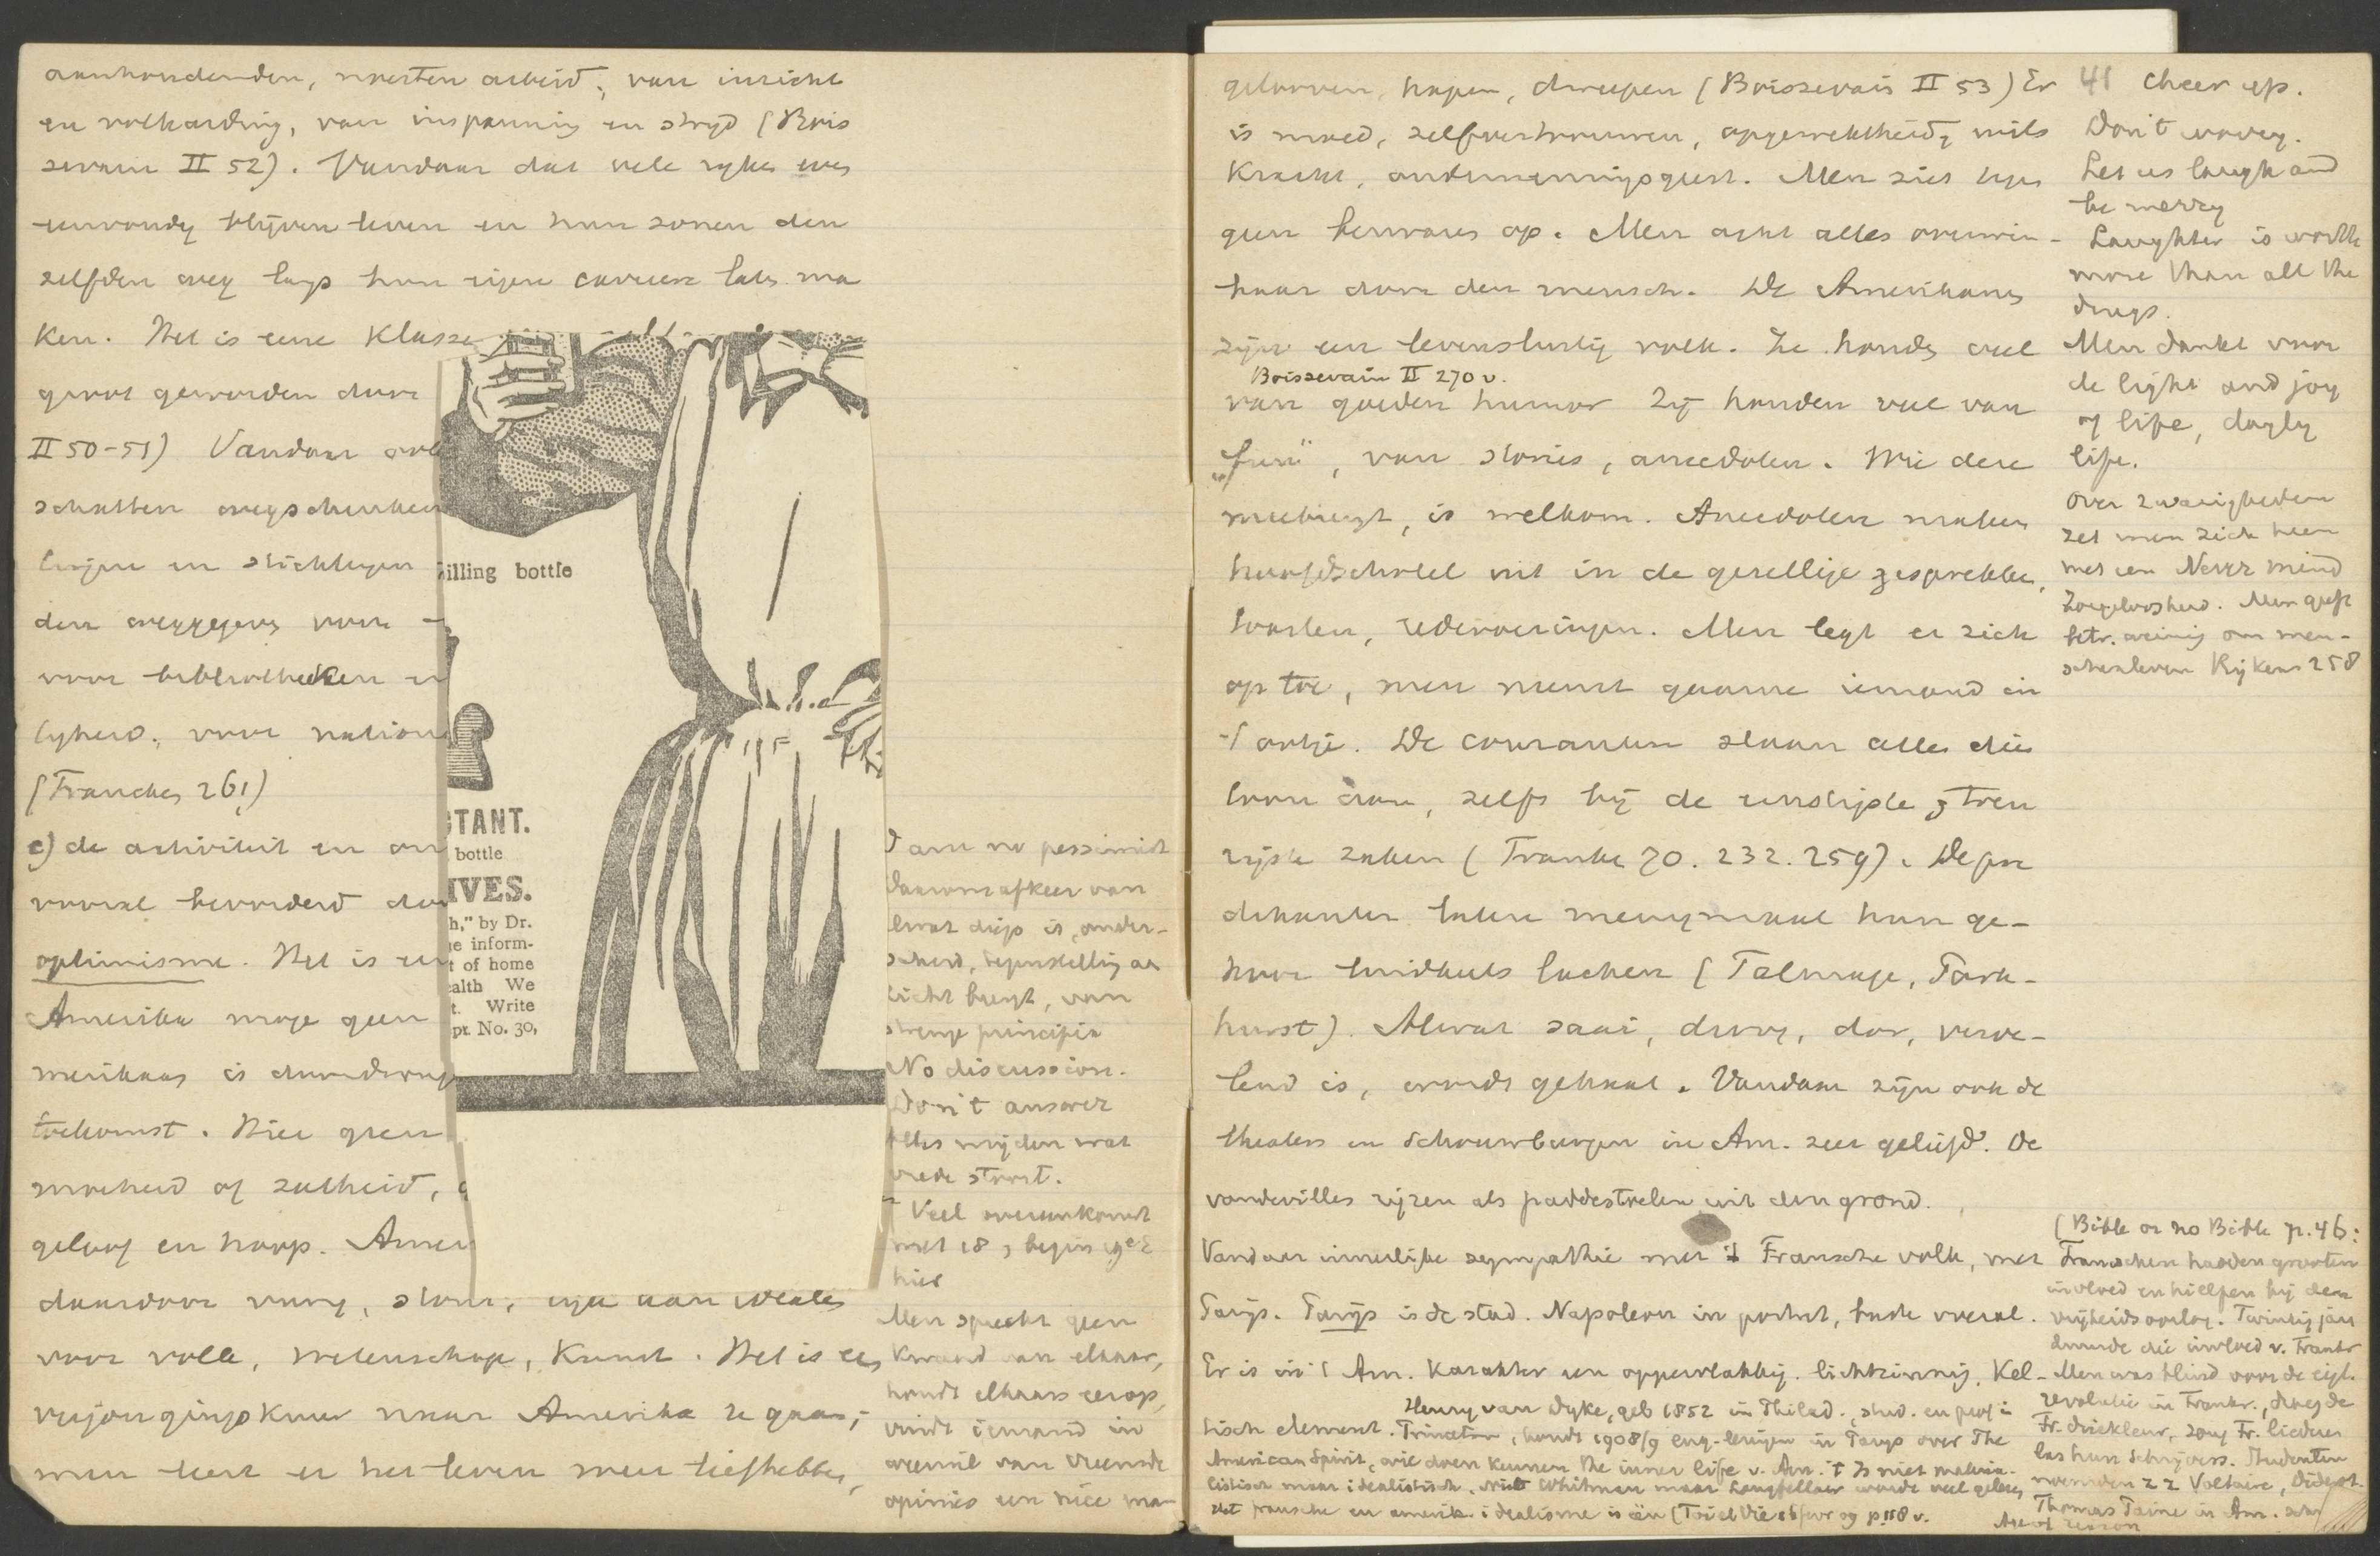 aanhoudenden, noesten arbeid, van inzicht
en volharding, van inspanning en strijd (Bois
sevain II 52). Vandaar dat vele rijken een
eenvoudig blijven leven en hun zonen den
zelfden weg langs hun eigen carriere laten ma
ken. Het is eene klasse
groot geworden door
II 50-51) Vandaar
schatten wegschenken
en stichtingen
den weggegeven voor
voor bibliotheken
lijkheid, voor nation
(Francken 261)
c) de activiteit en
vooral bevorderd door
optimisme. Het is een
Amerika moge geen
merikaan is
toekomst. Hier geen
moeheid of zatheid,
geloof en hoop. Amer
daardoor vurig, stout, aan idealen
voor volk, wetenschap, kunst. Het is een
verjongingskuur naar Amerika te gaan;
men leert er het leven meer liefhebben,
illing bottle
TANT.
bottle
IVES.
h," by Dr.
e inform-
t of home
ealth We
t. Write
pt. No. 30,
I am no pessimist
Daarom afkeer van
wat diep is, onder-
scheid, tegenstelling aan
licht brengt, van
strenge principia
No discussion.
Don't answer
Alles mijden wat
vrede stoort.
Veel overeenkomst
met 18, begin 19e E
hier
Men spreekt geen
kwaad van elkaar,
houdt elkaars eer op,
vindt iemand in
weerwil van vreemde
opinies een nice man
gelooven, hopen, dweepen (Boissevain II 53) Er
is moed, zelfvertrouwen, opgewektheid, wils
kracht, ondernemingsgeest. Men ziet tegen
geen bezwaren op. Men acht alles overwin-
baar door den mensch. De Amerikanen
zijn een levenslustig volk. Ze houden veel
Boissevain II 270 v.
van goeden humor Zij houden veel van
„fun", van stories, anecdoten. Wie deze
meebrengt, is welkom. Anecdoten maken
hoofdschotel uit in de gezellige gesprekken,
toasten, redevoeringen. Men legt er zich
op toe, men neemt gaarne iemand in
't ootje. De couranten slaan allen dien
toon aan, zelfs bij de ernstigste
zaken (Francke 70. 232. 259). De pre
dikanten laten menigmaal hun ge-
hoor luidkeels lachen (Talmage, Park-
hurst). Alwat saai, droog, dor, verve-
lend is, wordt gehaat. Vandaar zijn ook de
theaters en schouwburgen in Am. zeer geliefd. De
vaudevilles rijzen als paddestoelen uit den grond.
Vandaar innerlijke sympathie met 't Fransche volk, met
Parijs. Parijs is de stad. Napoleon in portret, buste overal.
Er is in 't Am. karakter een oppervlakkig. lichtzinnig. Kel-
tisch element. Henry van Dyke, geb 1852 in Philad., stud. en prof in
Princeton, houdt 1908/9 eng. lezingen in Parijs over The
American Spirit, wil doen kennen the inner life v. Am. 't Is niet materia-
listisch maar idealistisch. Niet Whitman maar Longfellow wordt veel gelezen
Het fransche en amerik. idealisme is één p. 118 v.
41 Cheer up.
Don't worry.
Let us laugh and
be merry
Laughter is worth
more than all the
drugs.
Men dankt voor
de light and joy
of life, dayly
life.
Over zwarigheden
zet men zich heen
met een Never mind
Zorgeloosheid. Men geeft
betr. weinig om men-
schenleven Rijkens 258
(Bible or no Bible p. 46:
Franschen hadden grooten
invloed en hielpen bij den
vrijheidsoorlog. Twintig jaar
duurde die invloed v. Frankr
Men was blind voor de eigl.
revolutie in Frankr., droeg de
Fr. driekleur, zong Fr. liederen
las hun schrijvers. Studenten
noemden zz Voltaire, Diderot.
Thomas Paine in Am.
Age of reason